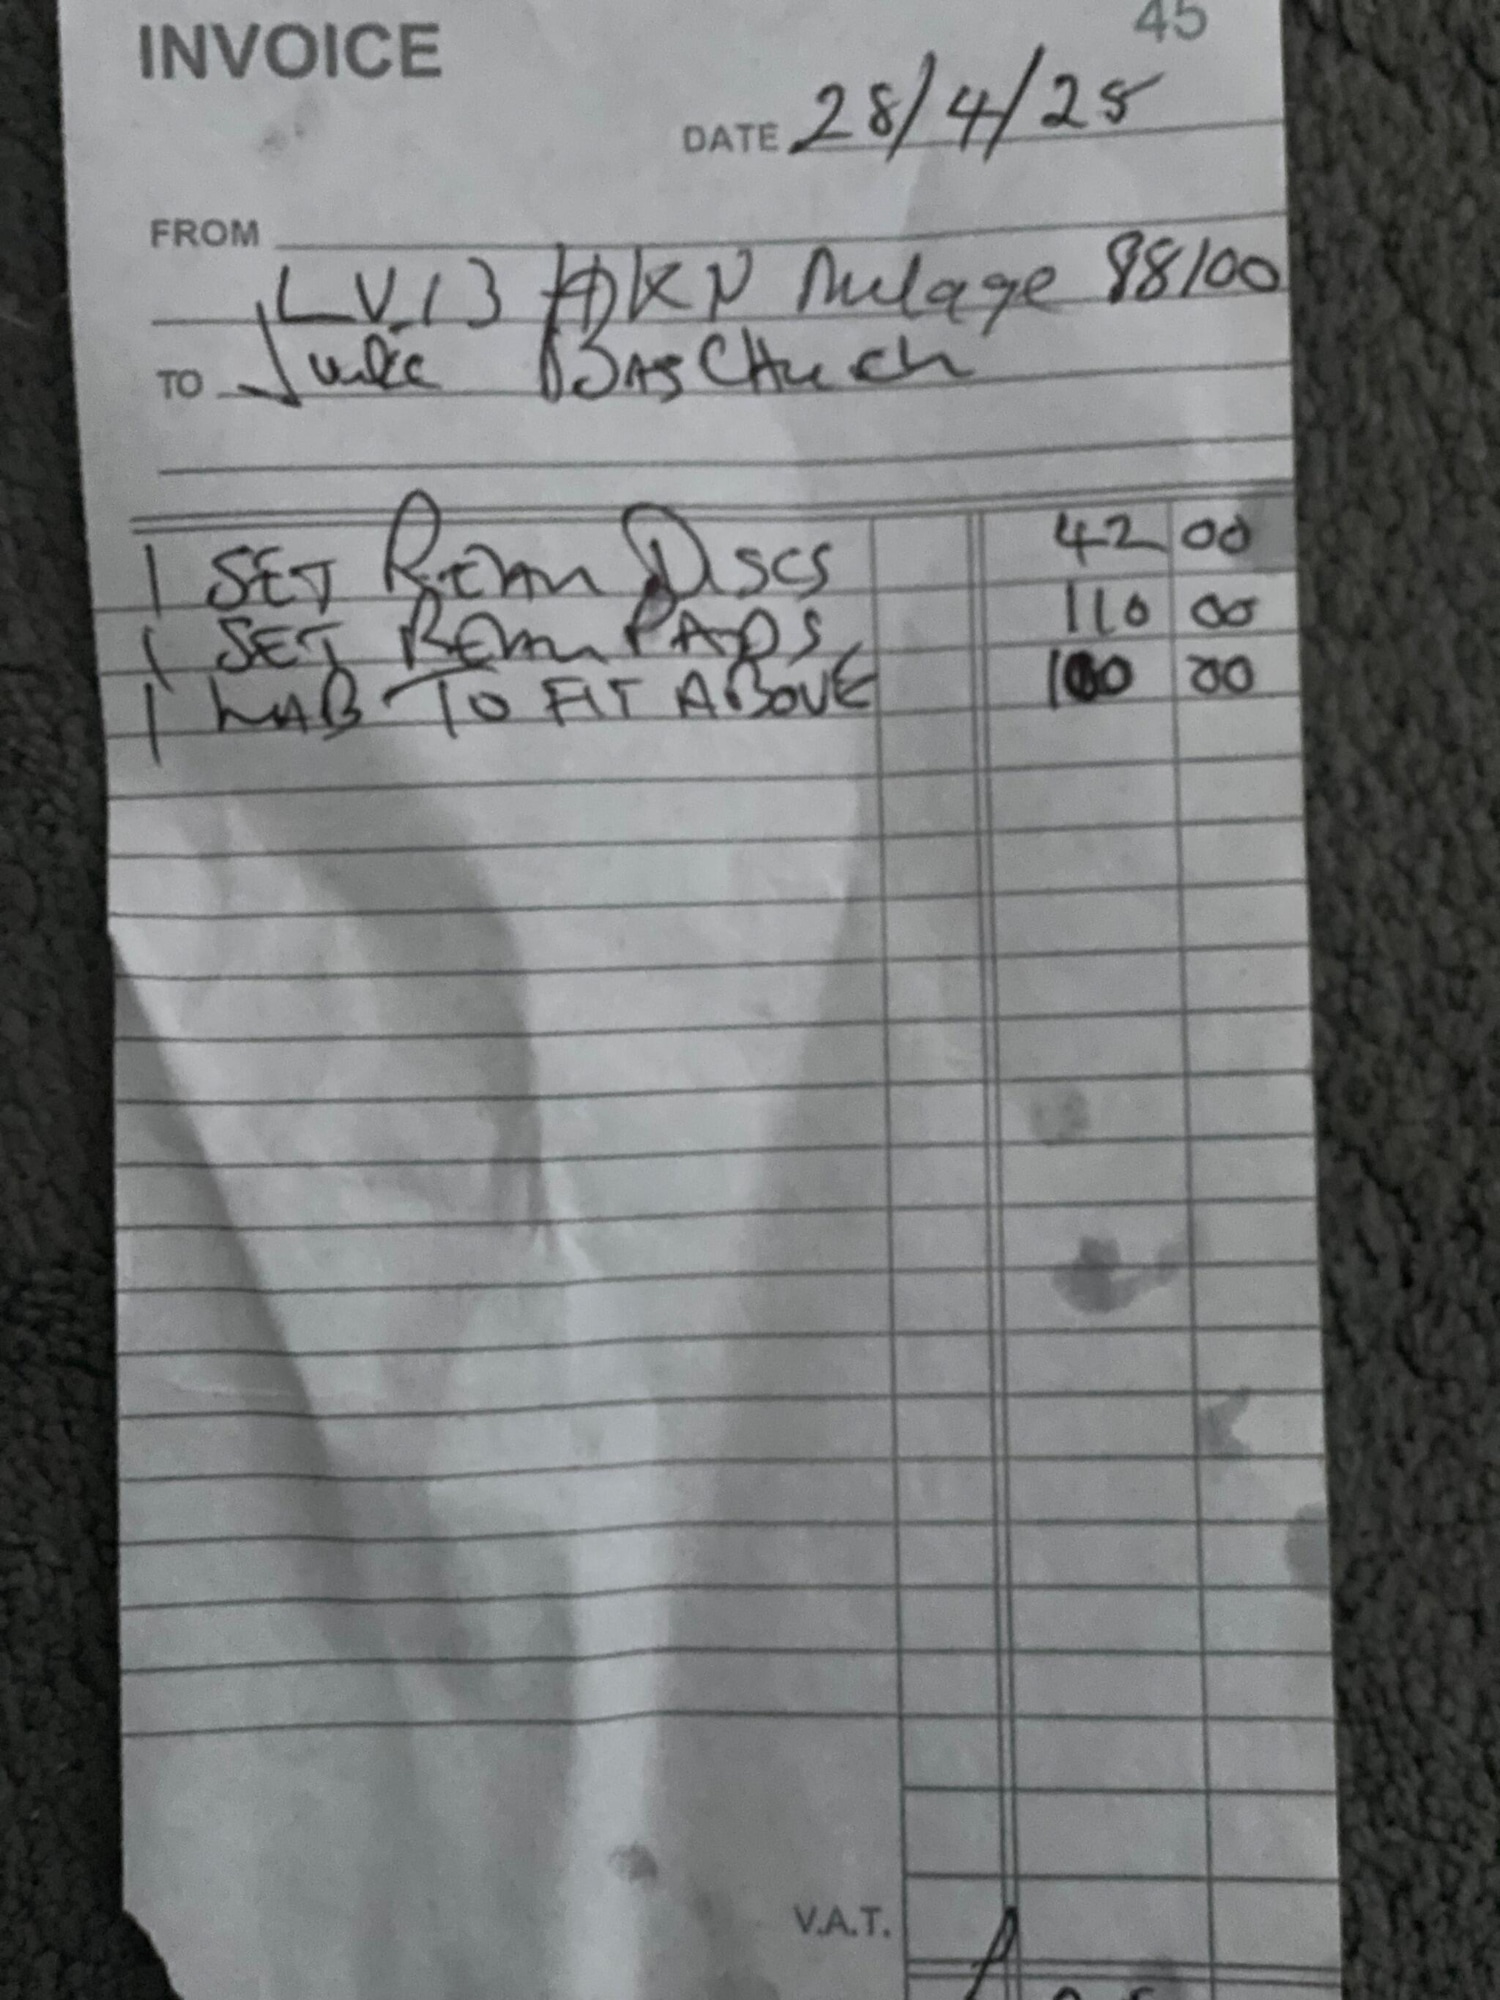 INVOICE
45
DATE 28/4/25
FROM
LV13 KN Milage 98100
TO Julie BasCHurch
1 SET Rear Discs 42 00
1 SET Rear PADS 110 00
1 LAB TO FIT ABOVE 100 00
V.A.T.